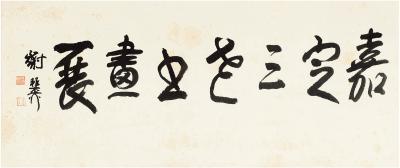 嘉定三老书畫展
謝稚柳